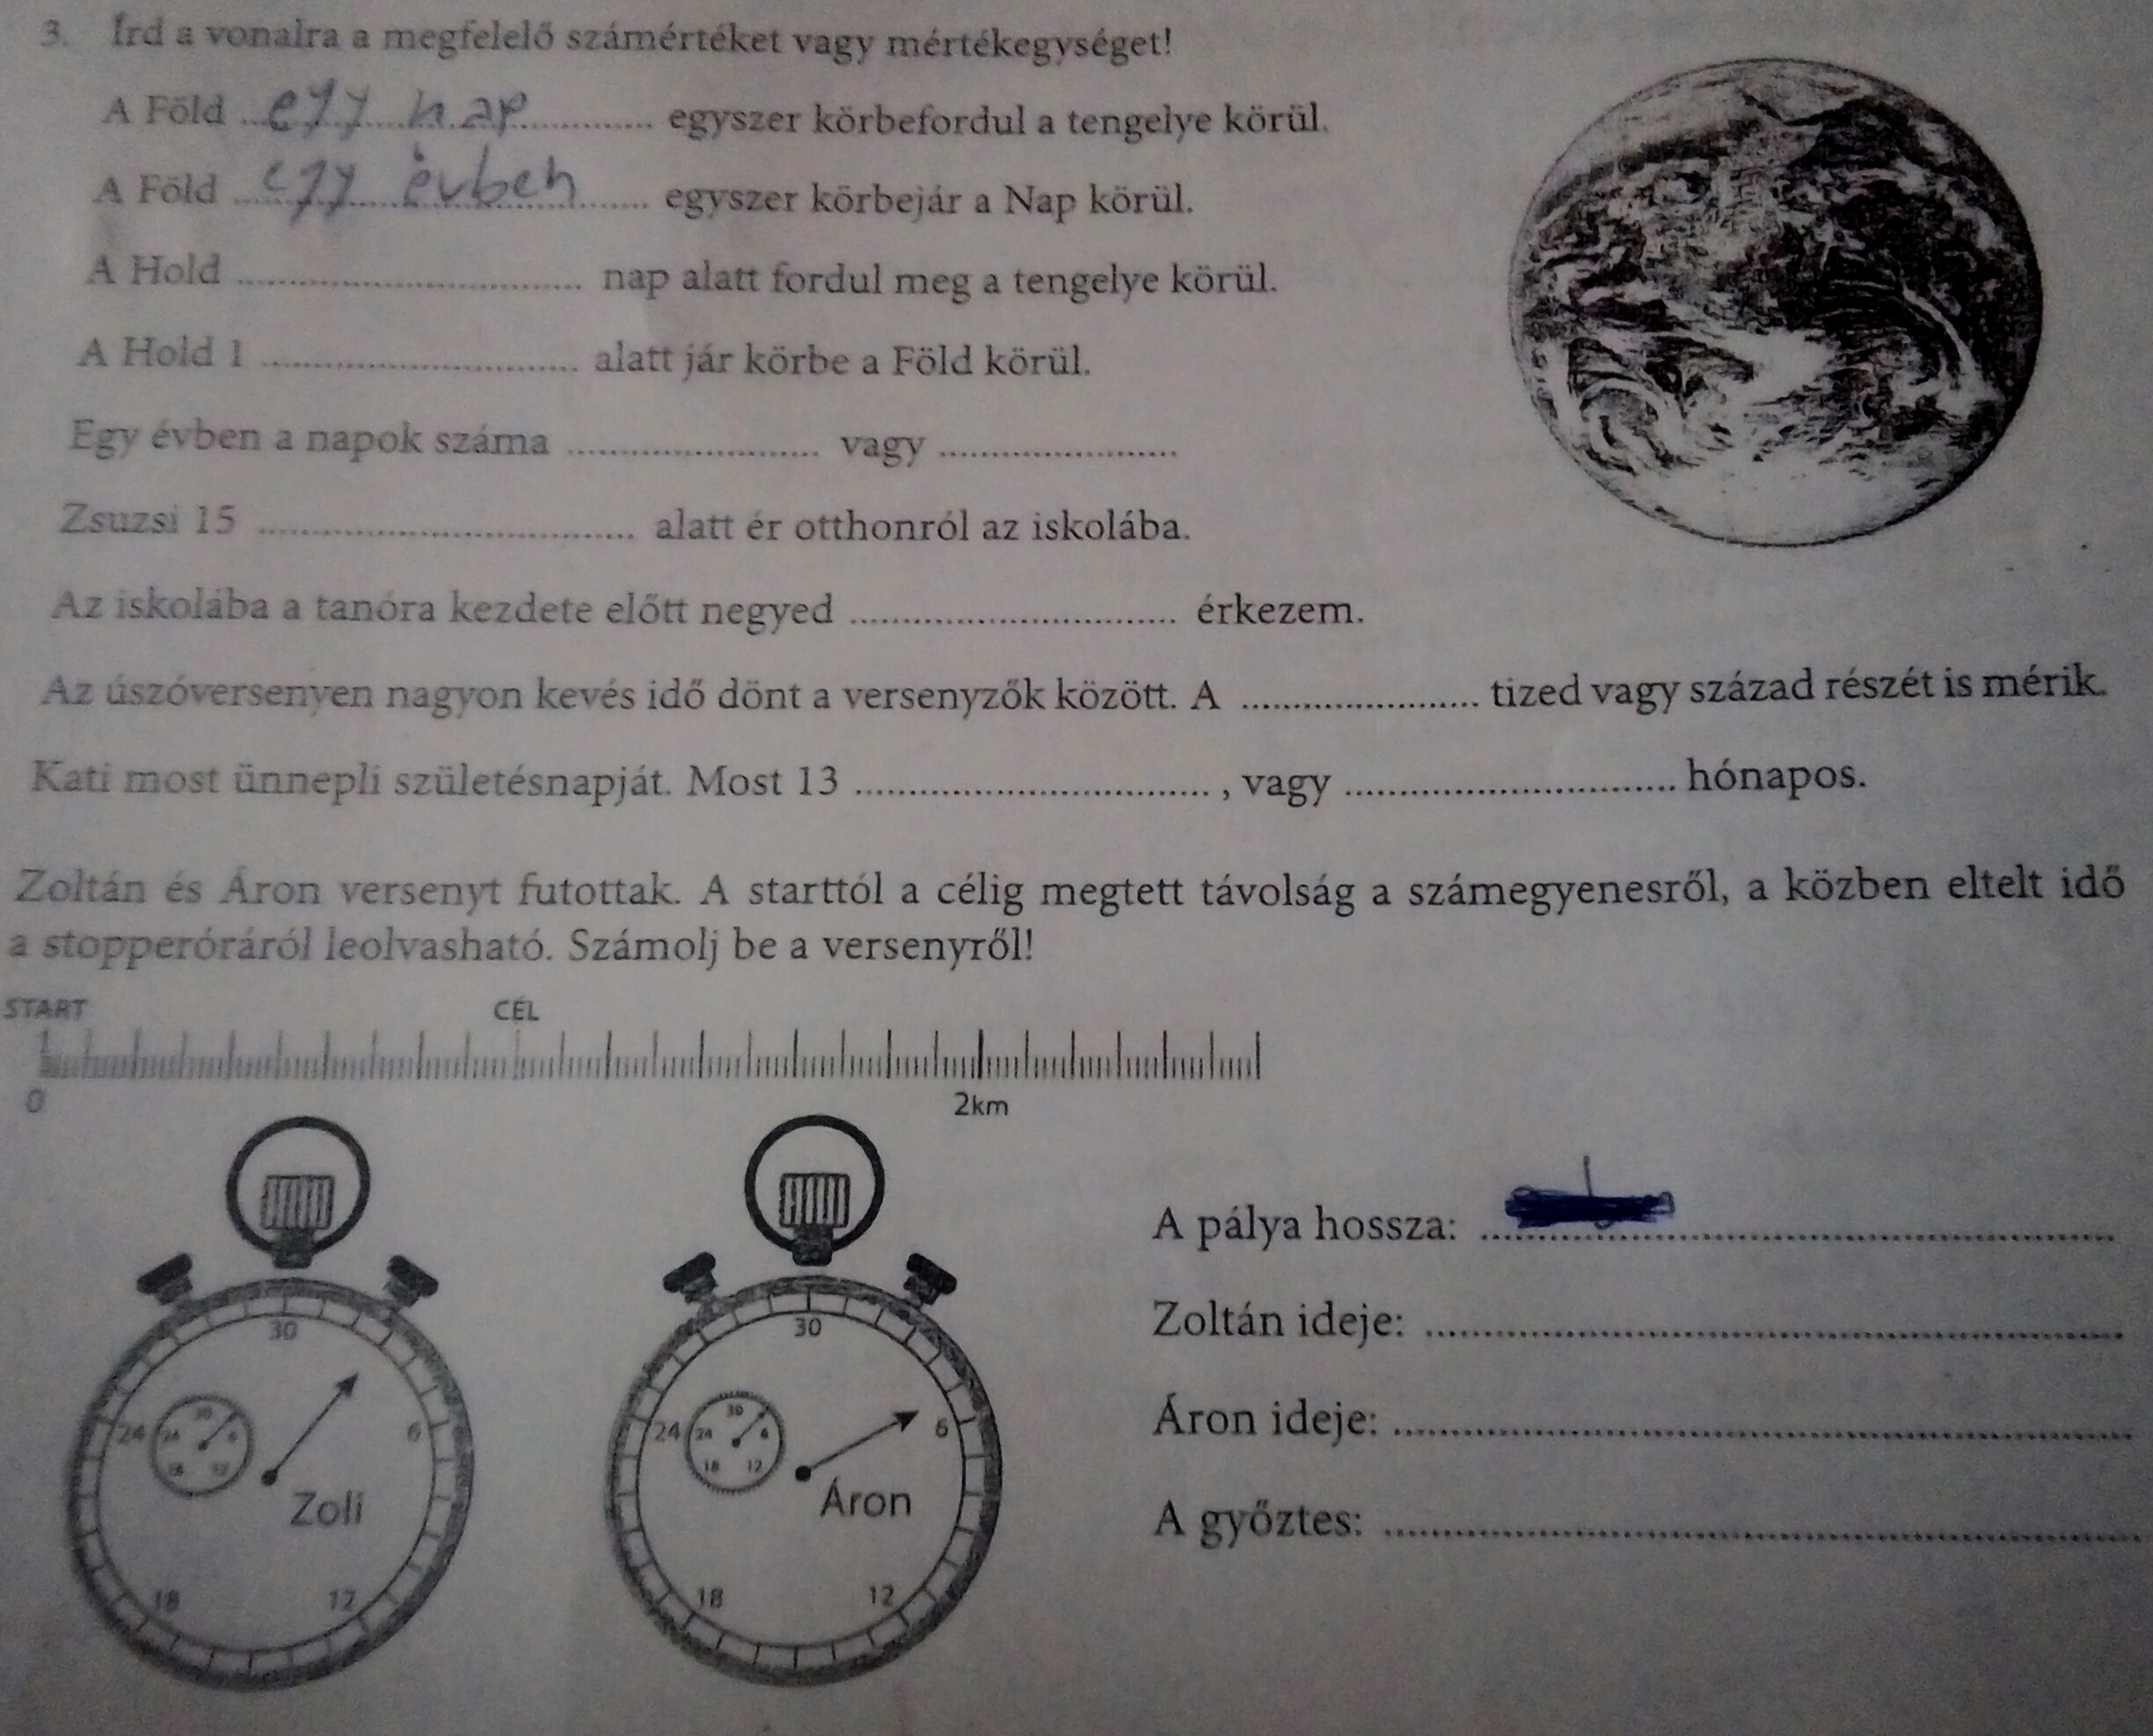 3. Írd a vonalra a megfelelő számértéket vagy mértékegységet!
A Föld egy nap egyszer körbefordul a tengelye körül.
A Föld egy évben egyszer körbejár a Nap körül.
A Hold .............................. nap alatt fordul meg a tengelye körül.
A Hold 1 .............................. alatt jár körbe a Föld körül.
Egy évben a napok száma ...................... vagy ......................
Zsuzsi 15 .............................. alatt ér otthonról az iskolába.
Az iskolába a tanóra kezdete előtt negyed .............................. érkezem.
Az úszóversenyen nagyon kevés idő dönt a versenyzők között. A ...................... tized vagy század részét is mérik.
Kati most ünnepli születésnapját. Most 13 .............................. , vagy .............................. hónapos.
Zoltán és Áron versenyt futottak. A starttól a célig megtett távolság a számegyenesről, a közben eltelt idő
a stopperóráról leolvasható. Számolj be a versenyről!
START CÉL
0 2km
30 30
24 6 24 6
30 24 6 18 12
30 24 6 18 12
Zoli Áron
18 12 18 12
A pálya hossza: ..............................
Zoltán ideje: ..............................
Áron ideje: ..............................
A győztes: ..............................